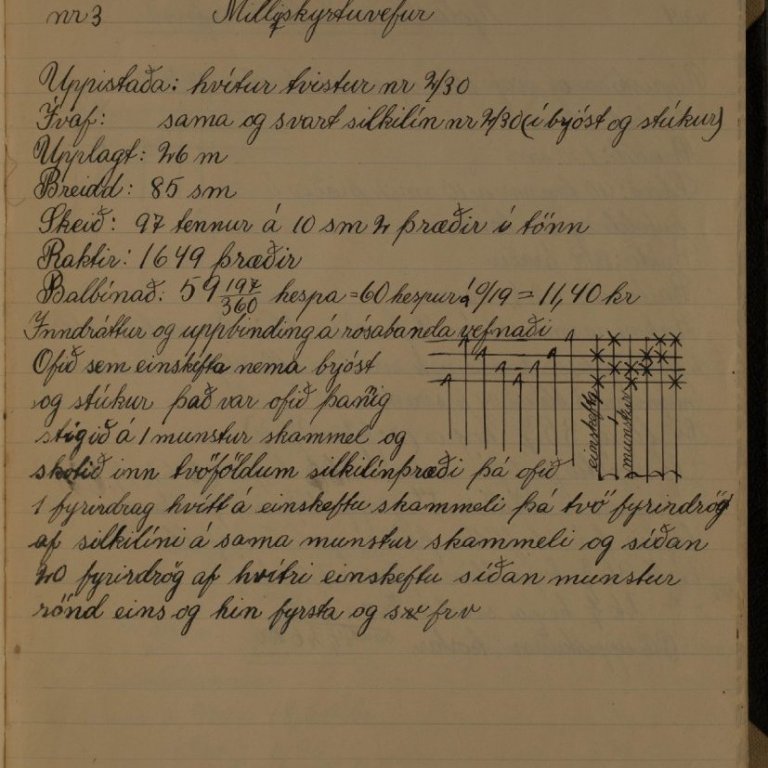 nr 3 Milliskyrtuvefur
Uppistaða: hvítur tvistur nr 2/30
Ívaf: sama og svart silkilín nr 2/30 (í byóst og stúkur)
Upplagt: 26 m
Breidd: 85 sm
Skeið: 97 tennur á 10 sm 2 þræðir í tönn
Raktir: 1649 þræðir
Balbínað: 59 197/360 hespa = 60 hespur á 0/19 = 11,40 kr
Inndráttur og uppbinding á rósabanda vefnaði
Ofið sem einskefta nema byóst
og stúkur það var ofið þannig
stigið á 1 munstur skammel og
skotið inn tvöföldum silkilínþræði þá ofið
1 fyrirdrag hvítt á einskeftu skammeli þá tvö fyrirdrög
af silkilíni á sama munstur skammeli og síðan
20 fyrirdrög af hvítri einskeftu síðan munstur
rönd eins og hin fyrsta og sv frv
einskefta
munstur